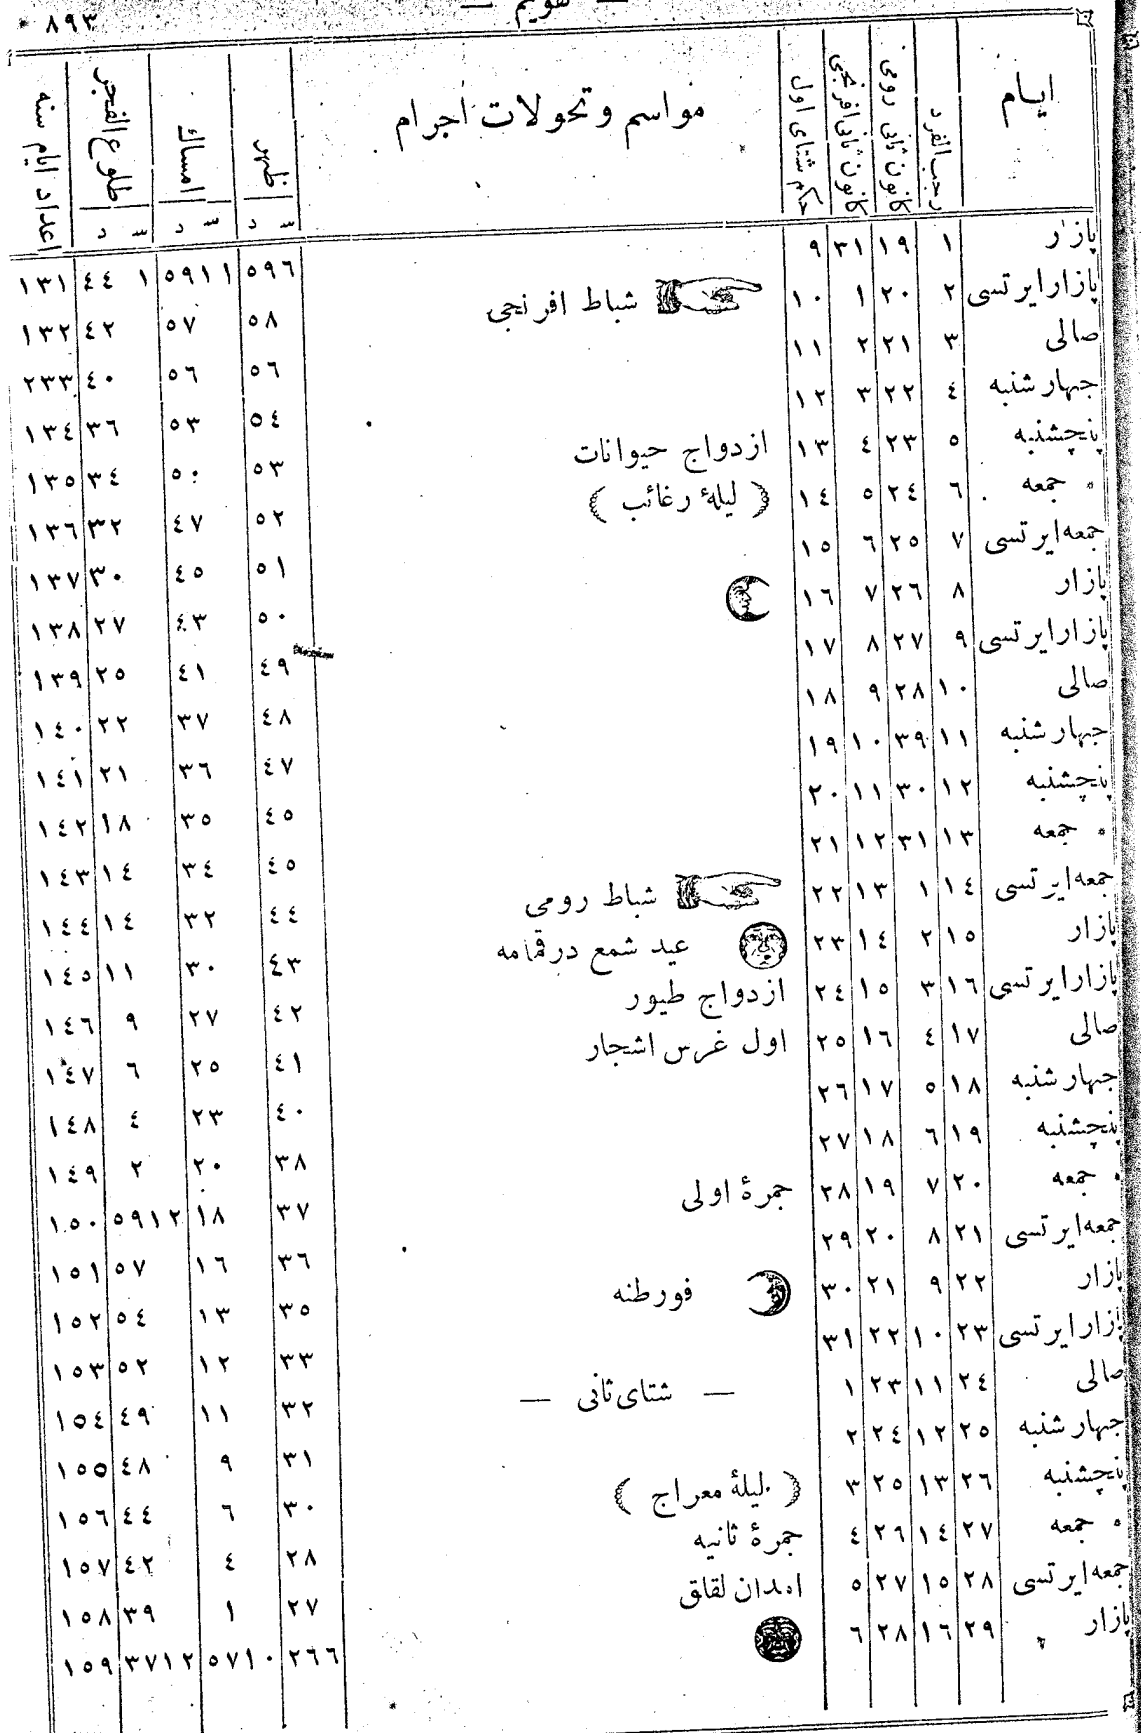 ٨٩٣ — تقويم —
ايام | رجب الفرد | كانون ثانى رومى | كانون ثانى افرنجى | حكم شتاى اول | مواسم وتحولات اجرام | ظهر س د | امساك س د | طلوع الفجر س د | اعداد ايام سنه
پازار ١ ١٩ ٣١ ٩ ٦ ٥٩ ١١ ٥٩ ١ ٤٤ ١٣١
پازار ايرتسى ٢ ٢٠ ١ ١٠ شباط افرنجى ٥٨ ٥٧ ٤٢ ١٣٢
صالى ٣ ٢١ ٢ ١١ ٥٦ ٥٦ ٤٠ ٢٣٣
جهارشنبه ٤ ٢٢ ٣ ١٢ ٥٤ ٥٣ ٣٦ ١٣٤
پنچشنبه ٥ ٢٣ ٤ ١٣ ازدواج حيوانات ٥٣ ٥٠ ٣٤ ١٣٥
جمعه ٦ ٢٤ ٥ ١٤ ( ليلهٔ رغائب ) ٥٢ ٤٧ ٣٢ ١٣٦
جمعه ايرتسى ٧ ٢٥ ٦ ١٥ ٥١ ٤٥ ٣٠ ١٣٧
پازار ٨ ٢٦ ٧ ١٦ ٥٠ ٤٣ ٢٧ ١٣٨
پازار ايرتسى ٩ ٢٧ ٨ ١٧ ٤٩ ٤١ ٢٥ ١٣٩
صالى ١٠ ٢٨ ٩ ١٨ ٤٨ ٣٧ ٢٢ ١٤٠
جهارشنبه ١١ ٣٩ ١٠ ١٩ ٤٧ ٣٦ ٢١ ١٤١
پنچشنبه ١٢ ٣٠ ١١ ٢٠ ٤٥ ٣٥ ١٨ ١٤٢
جمعه ١٣ ٣١ ١٢ ٢١ ٤٥ ٣٤ ١٤ ١٤٣
جمعه ايرتسى ١٤ ١ ١٣ ٢٢ شباط رومى ٤٤ ٣٢ ١٤ ١٤٤
پازار ١٥ ٢ ١٤ ٢٣ عيد شمع درقمامه ٤٣ ٣٠ ١١ ١٤٥
پازار ايرتسى ١٦ ٣ ١٥ ٢٤ ازدواج طيور ٤٢ ٢٧ ٩ ١٤٦
صالى ١٧ ٤ ١٦ ٢٥ اول غرس اشجار ٤١ ٢٥ ٦ ١٤٧
جهارشنبه ١٨ ٥ ١٧ ٢٦ ٤٠ ٢٣ ٤ ١٤٨
پنچشنبه ١٩ ٦ ١٨ ٢٧ ٣٨ ٢٠ ٢ ١٤٩
جمعه ٢٠ ٧ ١٩ ٢٨ جمرهٔ اولى ٣٧ ١٨ ١٢ ٥٩ ١٥٠
جمعه ايرتسى ٢١ ٨ ٢٠ ٢٩ ٣٦ ١٦ ٥٧ ١٥١
پازار ٢٢ ٩ ٢١ ٣٠ فورطنه ٣٥ ١٣ ٥٤ ١٥٢
پازار ايرتسى ٢٣ ١٠ ٢٢ ٣١ ٣٣ ١٢ ٥٢ ١٥٣
صالى ٢٤ ١١ ٢٣ ١ — شتاى ثانى — ٣٢ ١١ ٤٩ ١٥٤
جهارشنبه ٢٥ ١٢ ٢٤ ٢ ٣١ ٩ ٤٨ ١٥٥
پنچشنبه ٢٦ ١٣ ٢٥ ٣ ( ليلهٔ معراج ) ٣٠ ٦ ٤٤ ١٥٦
جمعه ٢٧ ١٤ ٢٦ ٤ جمرهٔ ثانيه ٢٨ ٤ ٤٢ ١٥٧
جمعه ايرتسى ٢٨ ١٥ ٢٧ ٥ امدان لقاق ٢٧ ١ ٣٩ ١٥٨
پازار ٢٩ ١٦ ٢٨ ٦ ٦ ٢٦ ١٠ ٥٧ ١٢ ٣٧ ١٥٩